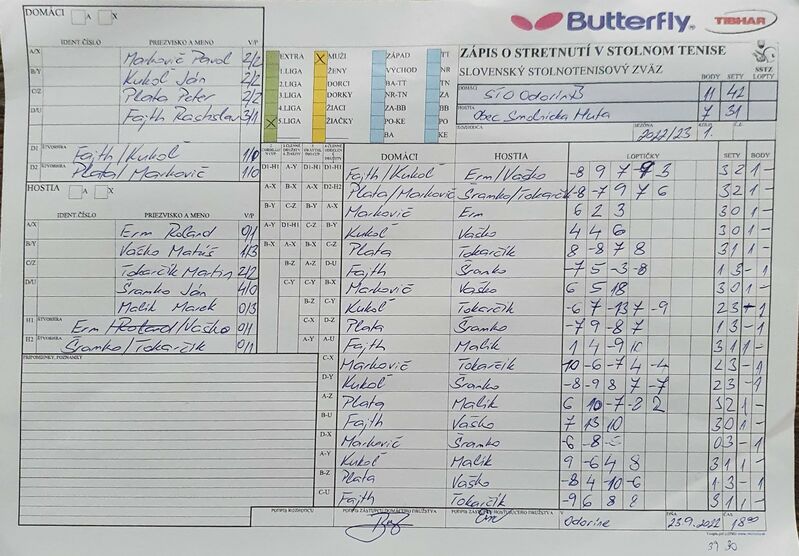 DOMÁCI A X
Butterfly TIBHAR
IDENT. ČÍSLO PRIEZVISKO A MENO V/P
A/X Markovič Pavol 2/2
B/Y Kukoľ Ján 2/2
C/Z Plata Peter 2/2
D/U Fajth Rastislav 3/1
D1 ŠTVORHRA Fajth/Kukoľ 1/0
D2 Plata/Markovič 1/0
EXTRA X MUŽI ZÁPAD TT
1.LIGA ŽENY VÝCHOD NR
2.LIGA DORCI BA-TT
3.LIGA DORKY NR-TN ZA
4.LIGA ŽIACI ZA-BB BB
X 5.LIGA ŽIAČKY PO-KE PO
BA KE
ZÁPIS O STRETNUTÍ V STOLNOM TENISE
SLOVENSKÝ STOLNOTENISOVÝ ZVÄZ SSTZ
BODY SETY LOPTY
DOMÁCI STO Odorín B 11 42
HOSTIA Obec Smolnícka Huta 7 31
ROZHODCA SEZÓNA 2022/23 1.
HOSTIA A X
IDENT.ČÍSLO PRIEZVISKO A MENO V/P
A/X Erm Roland 0/1
B/Y Vaško Matúš 1/3
C/Z Tokarčik Martin 2/2
D/U Šramko Ján 4/0
Malik Marek 0/3
H1 ŠTVORHRA Erm /Vaško 0/1
H2 ŠTVORHRA Šramko/Tokarčik 0/1
PRIPOMIENKY, POZNÁMKY
DOMÁCI HOSTIA LOPTIČKY SETY BODY
D1-H1 A-Y D1-H1 D1-H1 Fajth/Kukoľ Erm/Vaško -8 9 7 -9 3 3 2 1 -
A-X B-X A-X D2-H2 Plata/Markovič Šramko/Tokarčik -8 -7 9 7 6 3 2 1 -
Markovič Erm 6 2 3 3 0 1 -
Kukoľ Vaško 4 4 6 3 0 1 -
Plata Tokarčik 8 -8 7 8 3 1 1 -
Fajth Šramko -7 5 -3 -8 1 3 - 1
Markovič Vaško 6 5 18 3 0 1 -
Kukoľ Tokarčik -6 7 -13 7 -9 2 3 - 1
Plata Šramko -7 9 -8 7 1 3 - 1
A-U Fajth Malik 1 4 -9 10 3 1 1 -
C-X Markovič Tokarčik 10 -6 -7 4 -4 2 3 - 1
D-Y Kukoľ Šramko -8 -9 8 7 -7 2 3 - 1
A-Z Plata Malik 6 10 -7 -8 2 3 2 1 -
B-U Fajth Vaško 7 13 10 3 0 1 -
D-X Markovič Šramko -6 -8 -5 0 3 - 1
A-Y Kukoľ Malik 9 -6 4 8 3 1 1 -
B-Z Plata Vaško -8 4 -10 -6 1 3 - 1
C-U Fajth Tokarčik -9 6 8 8 3 1 1 -
PODPIS ROZHODCU PODPIS ZÁSTUPCU DOMÁCEHO DRUŽSTVA PODPIS ZÁSTUPCU HOSŤUJÚCEHO DRUŽSTVA V Odoríne DŇA 23.9.2022 ČAS 18:00
39 30